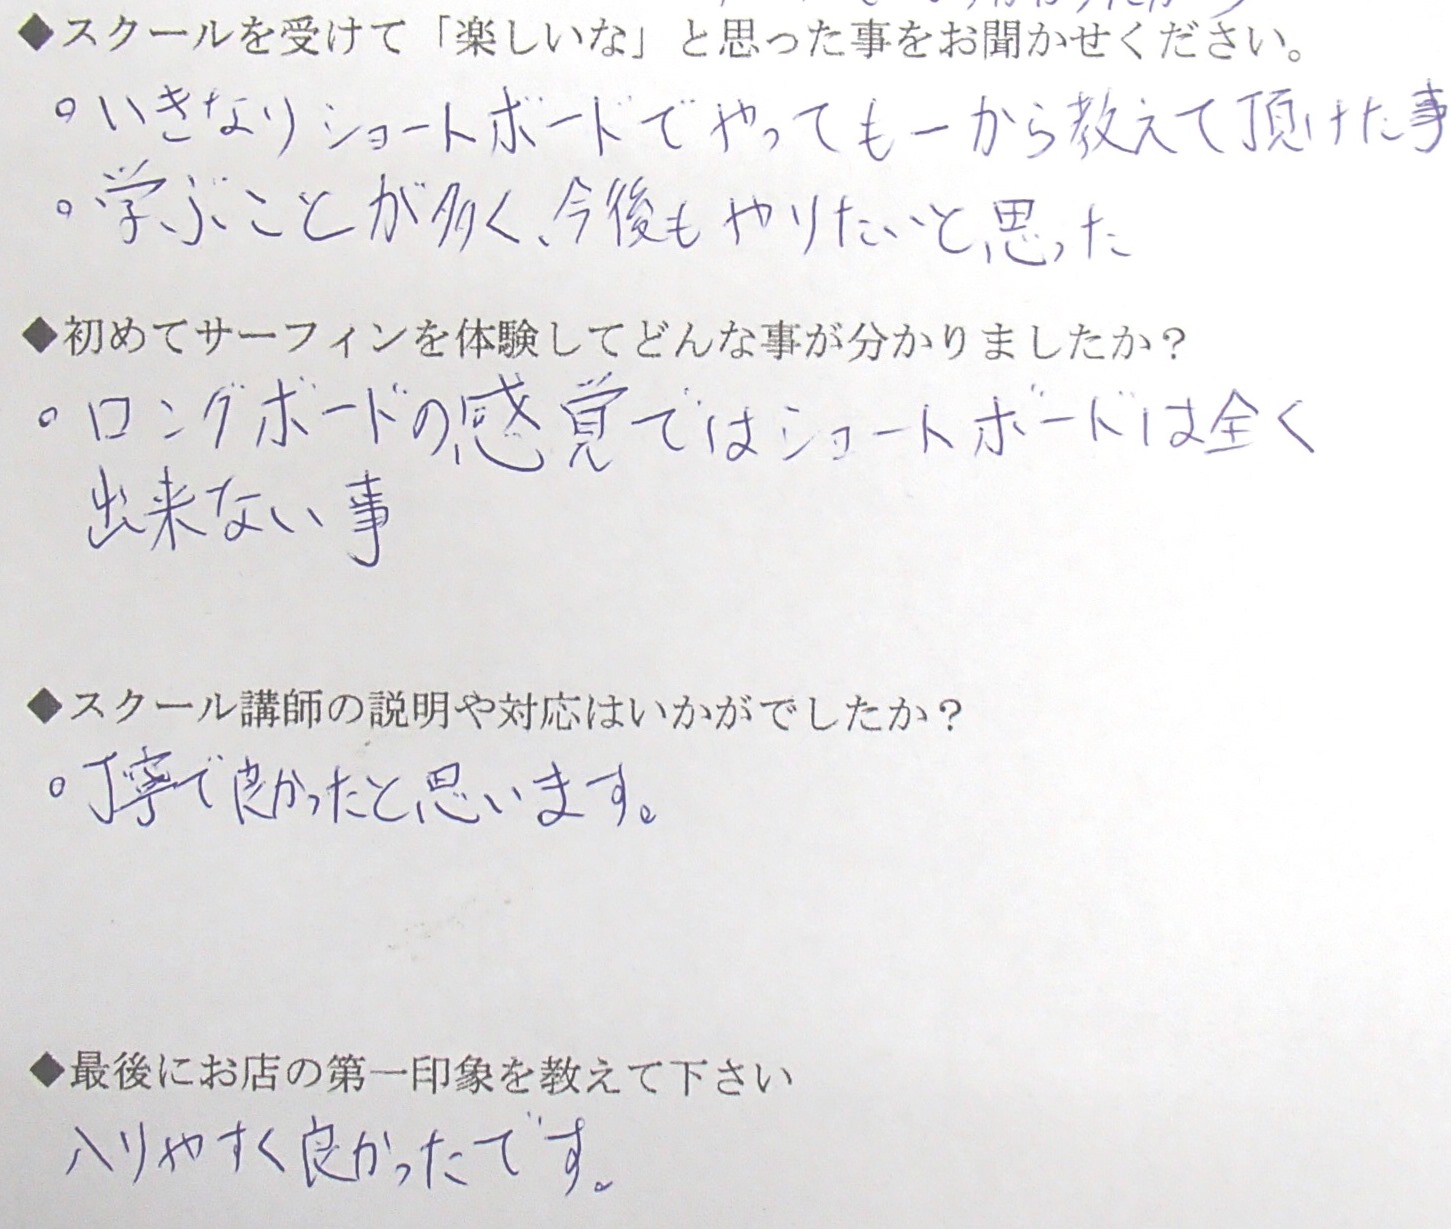 ◆スクールを受けて「楽しいな」と思った事をお聞かせください。
○いきなりショートボードでやっても一から教えて頂けた事
○学ぶことが多く、今後もやりたいと思った
◆初めてサーフィンを体験してどんな事が分かりましたか？
○ロングボードの感覚ではショートボードは全く
出来ない事
◆スクール講師の説明や対応はいかがでしたか？
○丁寧で良かったと思います。
◆最後にお店の第一印象を教えて下さい
入りやすく良かったです。